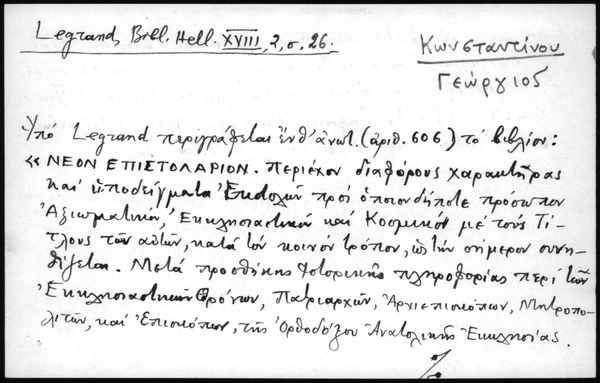 Legrand, Bibl. Hell. XVIII, 2, σ. 26.
Κωνσταντίνου
Γεώργιος
Ὑπὸ Legrand περιγράφεται ἐνθ' ἀνωτ. (ἀριθ. 606) τὸ βιβλίον:
« ΝΕΟΝ ΕΠΙΣΤΟΛΑΡΙΟΝ. Περιέχον διαφόρους χαρακτῆρας
καὶ ὑποδείγματα Ἐπιστολῶν πρὸς ὁποιονδήποτε πρόσωπον
Ἀξιωματικόν, Ἐκκλησιαστικὸν καὶ Κοσμικὸν μὲ τοὺς Τί-
τλους τῶν αὐτῶν, κατὰ τὸν κοινὸν τρόπον, ὡς τὴν σήμερον συνη-
θίζεται. Μετὰ προσθήκης Ἱστορικῆς πληροφορίας περὶ τῶν
Ἐκκλησιαστικῶν Θρόνων, Πατριαρχῶν, Ἀρχιεπισκόπων, Μητροπο-
λιτῶν, καὶ Ἐπισκόπων, τῆς Ὀρθοδόξου Ἀνατολικῆς Ἐκκλησίας.
./.